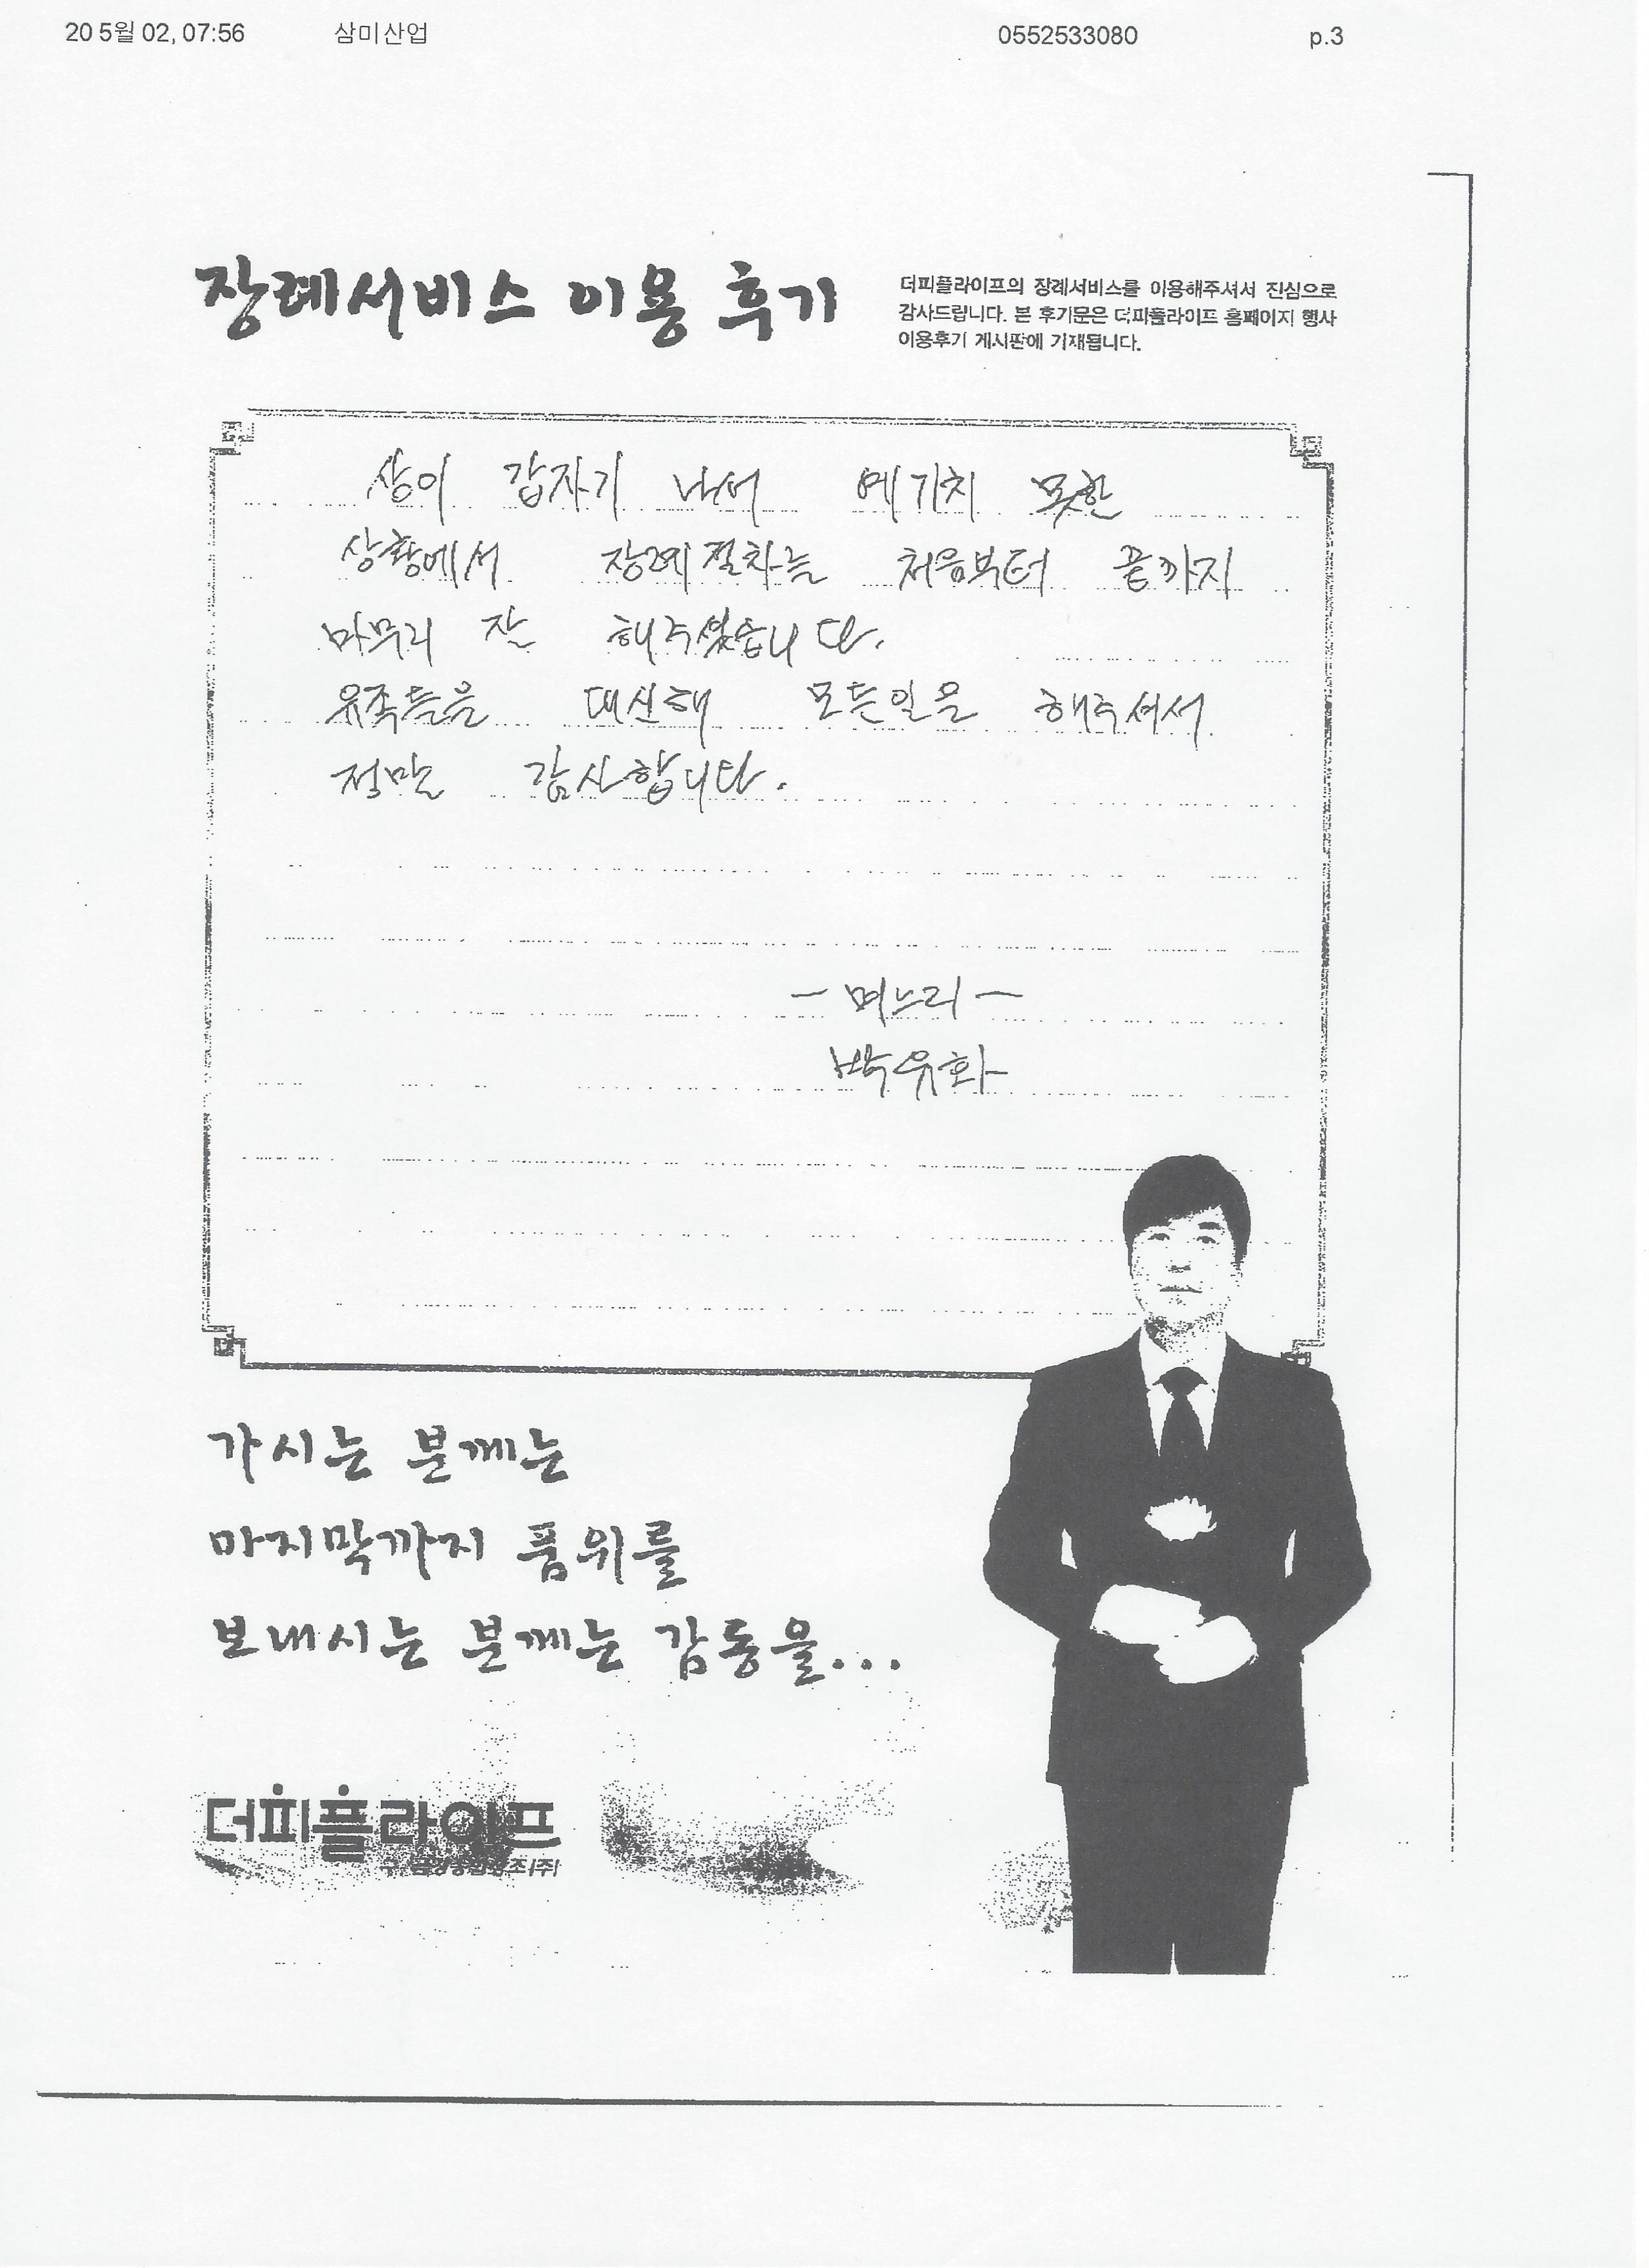 20 5월 02, 07:56 삼미산업 0552533080 p.3
장례서비스 이용 후기
더피플라이프의 장례서비스를 이용해주셔서 진심으로
감사드립니다. 본 후기문은 더피플라이프 홈페이지 행사
이용후기 게시판에 기재됩니다.
상이 갑자기 나서 예기치 못한
상황에서 장례절차는 처음부터 끝까지
마무리 잘 해주셨습니다.
유족들을 대신해 모든일을 해주셔서
정말 감사합니다.
- 며느리 -
박유화
가시는 분께는
마지막까지 품위를
보내시는 분께는 감동을...
더피플라이프